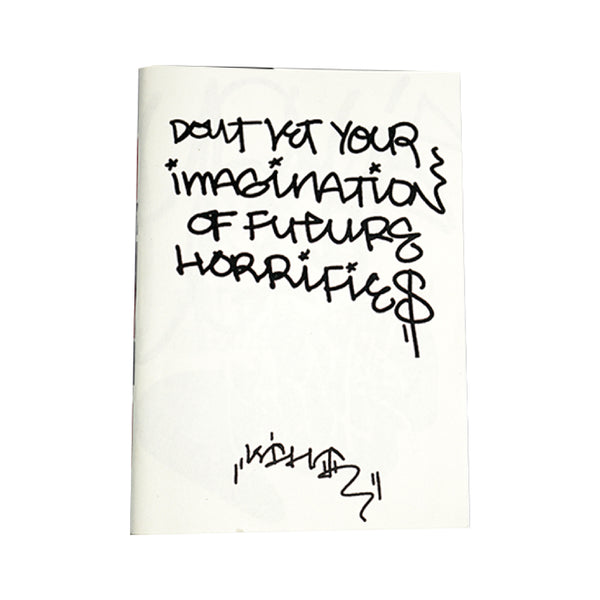 DONT VET YOUR
iMAGiNATiON
OF FUTURE
HORRiFiE$
"KiSHI"